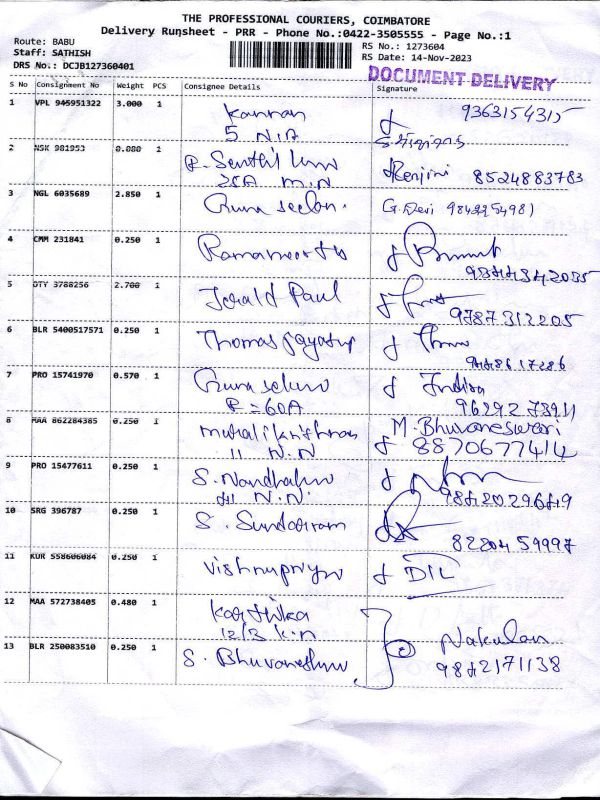 THE PROFESSIONAL COURIERS, COIMBATORE
Delivery Runsheet - PRR - Phone No.:0422-3505555 - Page No.:1
Route: BABU
Staff: SATHISH
DRS No.: DCJB127360401
RS No.: 1273604
RS Date: 14-Nov-2023
DOCUMENT DELIVERY
S No Consignment No Weight PCS Consignee Details Signature
1 VPL 945951322 3.000 1 Kannan 9363154315
5 N.A
2 NSK 981953 0.080 1 R. Senthil Renjini 8524883783
25A M.N
3 NGL 6035689 2.850 1 Guna seelan. G. Devi 9842254981
4 CMM 231841 0.250 1 Ramamoorthy
5 OTY 3788256 2.700 1 Jerald Paul 9787312205
6 BLR 5400517571 0.250 1 Thomas
7 PRO 15741970 0.570 1 Guna Indira
R = 60A
8 MAA 862284385 0.250 1 Muralikrishnan M. Bhuvaneswari
11 N.N 8870677414
9 PRO 15477611 0.250 1 S.
N.N.
10 SRG 396787 0.250 1 S. 8220459997
11 KUR 558606084 0.250 1 Vishnupriya DIL
12 MAA 572738405 0.480 1 Karthika Nakulan
12/3 K.N
13 BLR 250083510 0.250 1 S. 9842171138